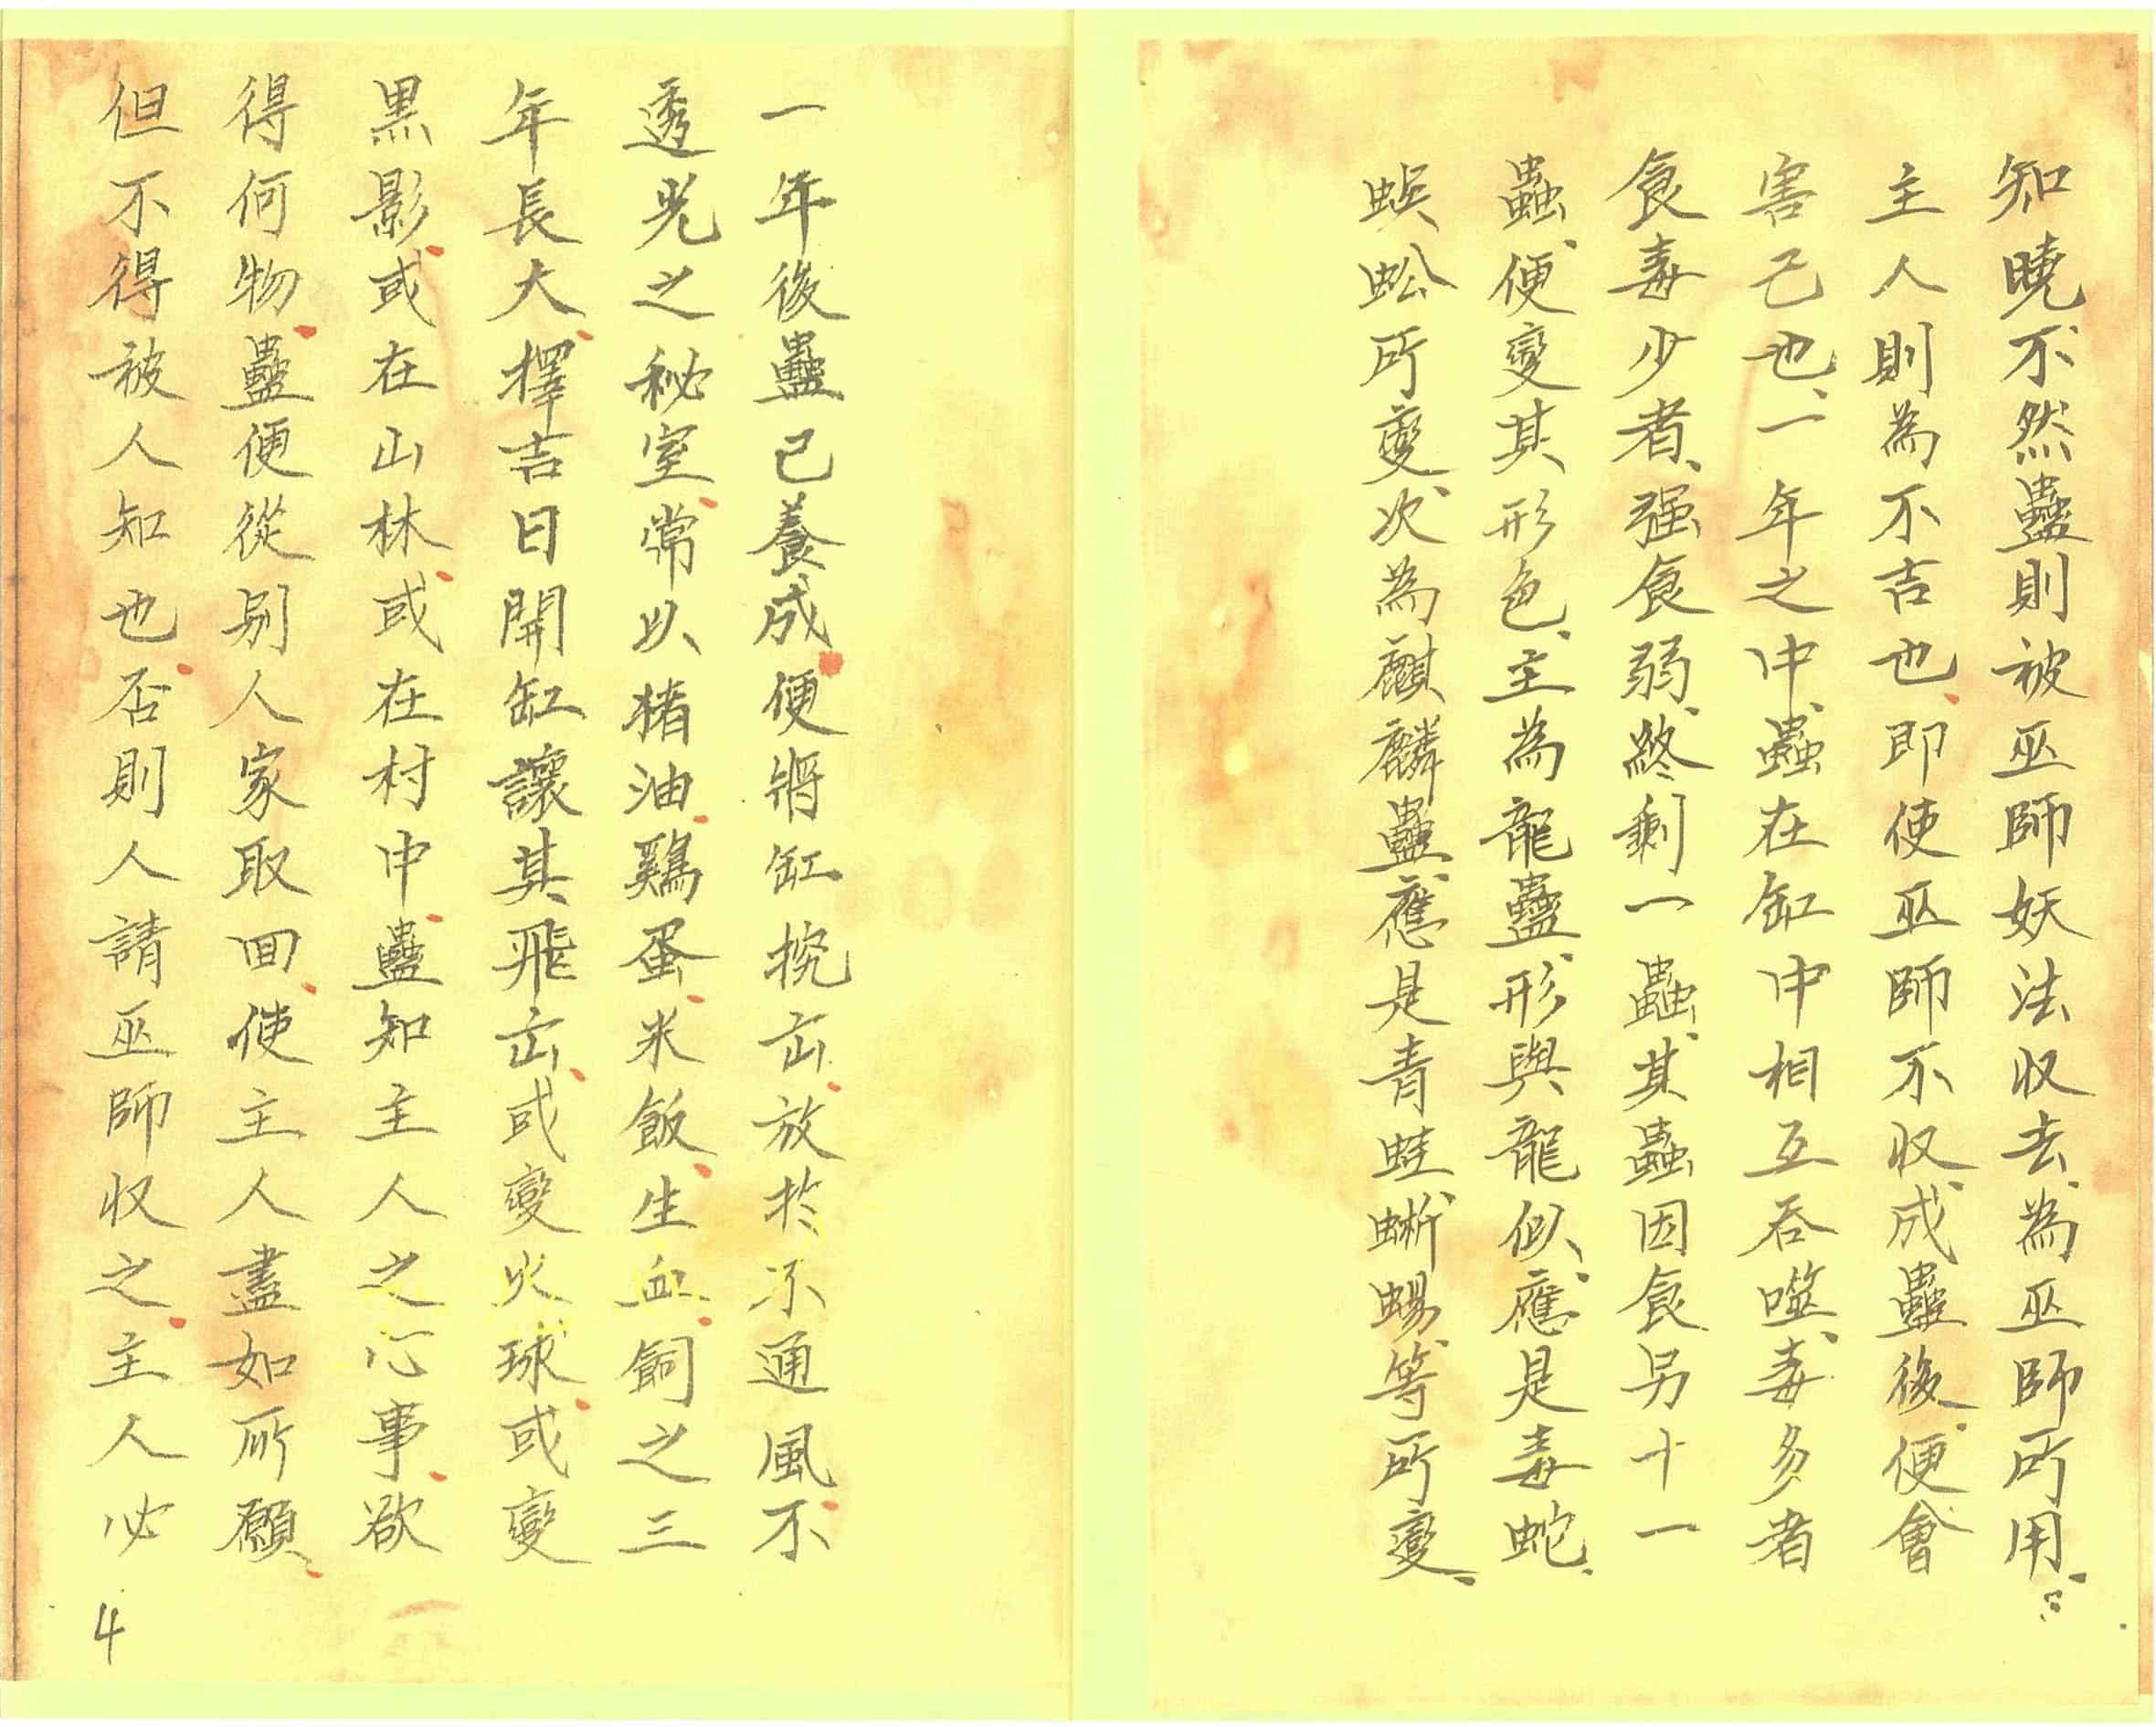 知曉、不然蠱則被巫師妖法収去、為巫師所用、
主人則為不吉也、即使巫師不収、成蠱後、便會
害己也、一年之中、蟲在缸中相互吞噬、毒多者
食毒少者、强食弱、終剩一蟲、其蟲因食另十一
蟲、便變其形色、主為龍蠱、形與龍似、應是毒蛇、
蜈蚣所變、次為麒麟蠱、應是青蛙、蜥蜴、等所變、
一年後蠱已養成、便將缸挖出、放於不通風不
透光之秘室、常以猪油、鷄蛋、米飯、生血、飼之三
年長大、擇吉日開缸讓其飛出、或變火球、或變
黒影、或在山林、或在村中、蠱知主人之心事、欲
得何物、蠱便從别人家取回、使主人盡如所願、
但不得被人知也、否則人請巫師収之、主人必
4